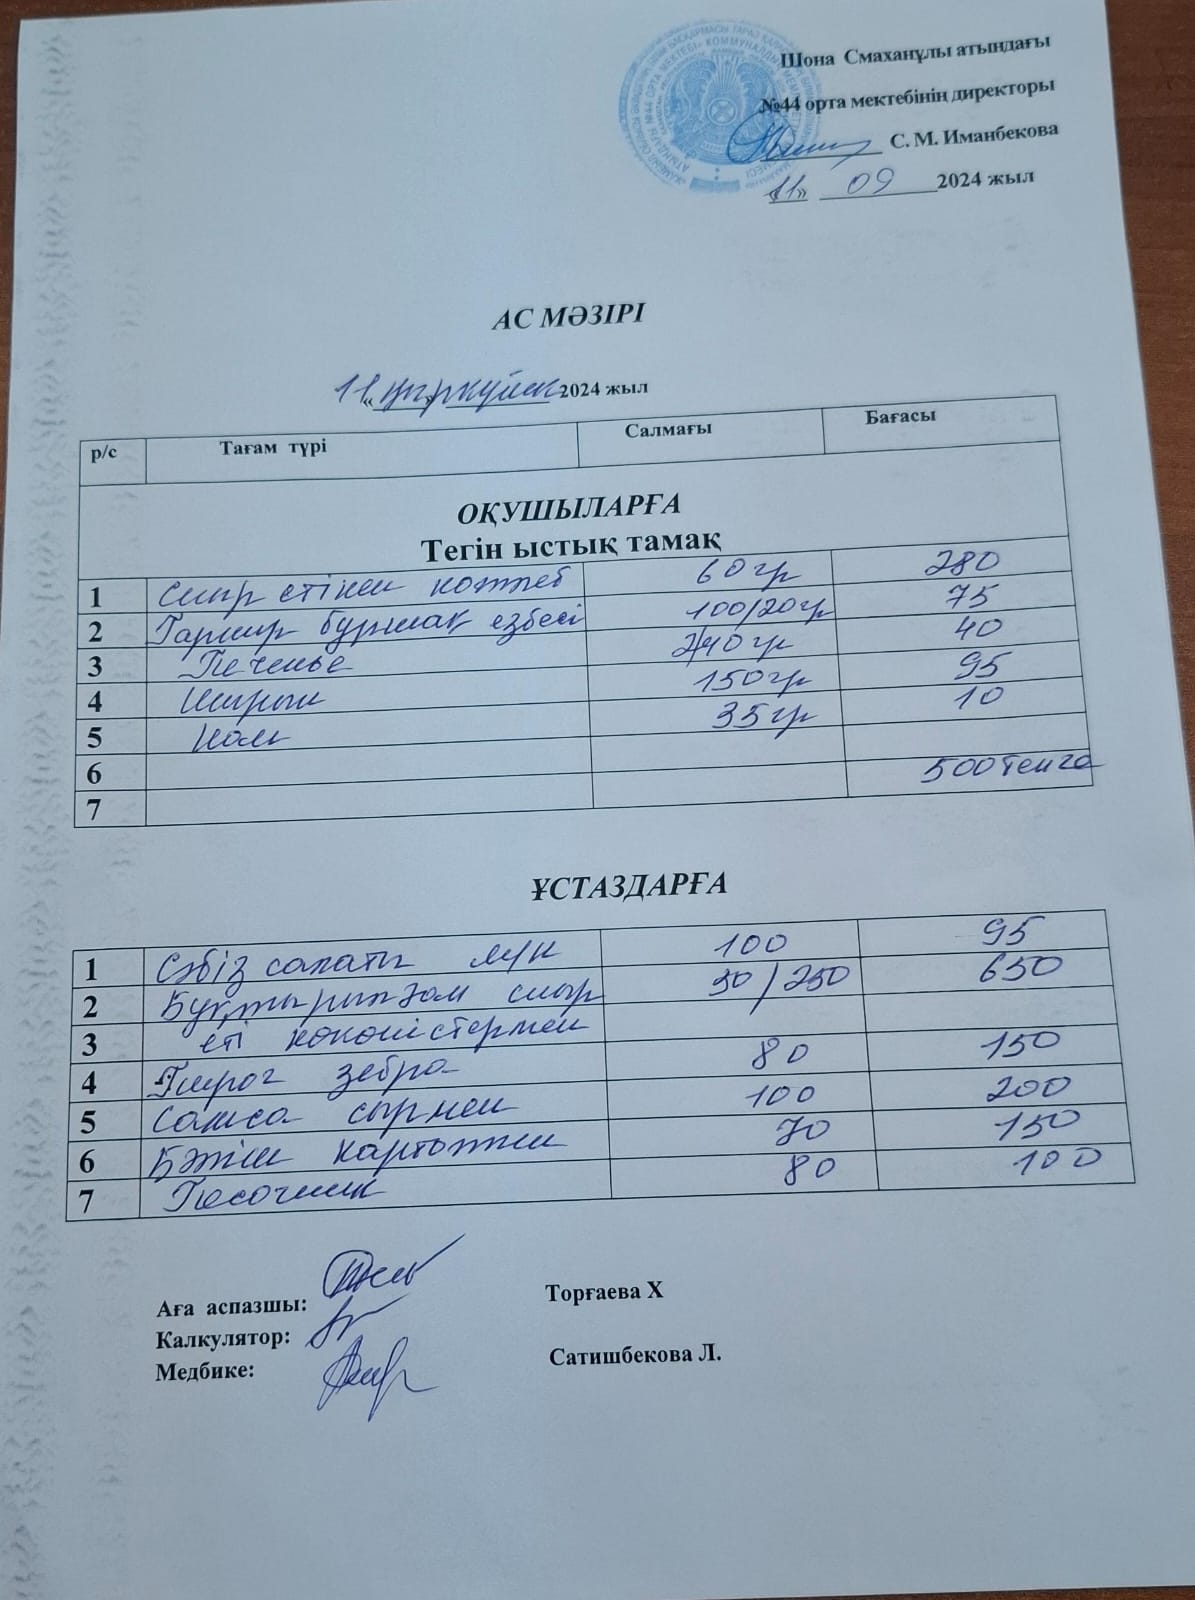 Шона Смаханұлы атындағы
№44 орта мектебінің директоры
С. М. Иманбекова
«11» 09 2024 жыл
АС МӘЗІРІ
«11» қыркүйек 2024 жыл
р/с Тағам түрі Салмағы Бағасы
ОҚУШЫЛАРҒА
Тегін ыстық тамақ
1 Сиыр етінен котлеб 60гр 280
2 Гарнир бұршақ езбесі 100/20гр 75
3 Печенье 240гр 40
4 Шырын 150гр 95
5 Нан 35гр 10
6 500тенге
7
ҰСТАЗДАРҒА
1 Сәбіз салаты 100 95
2 Бұқтырылған сиыр 50/250 650
3 еті көкөністермен
4 Пирог зебра 80 150
5 Самса сырмен 100 200
6 Бәліш картоппен 70 150
7 Песочник 80 100
Аға аспазшы: Торғаева Х
Калкулятор:
Медбике: Сатишбекова Л.